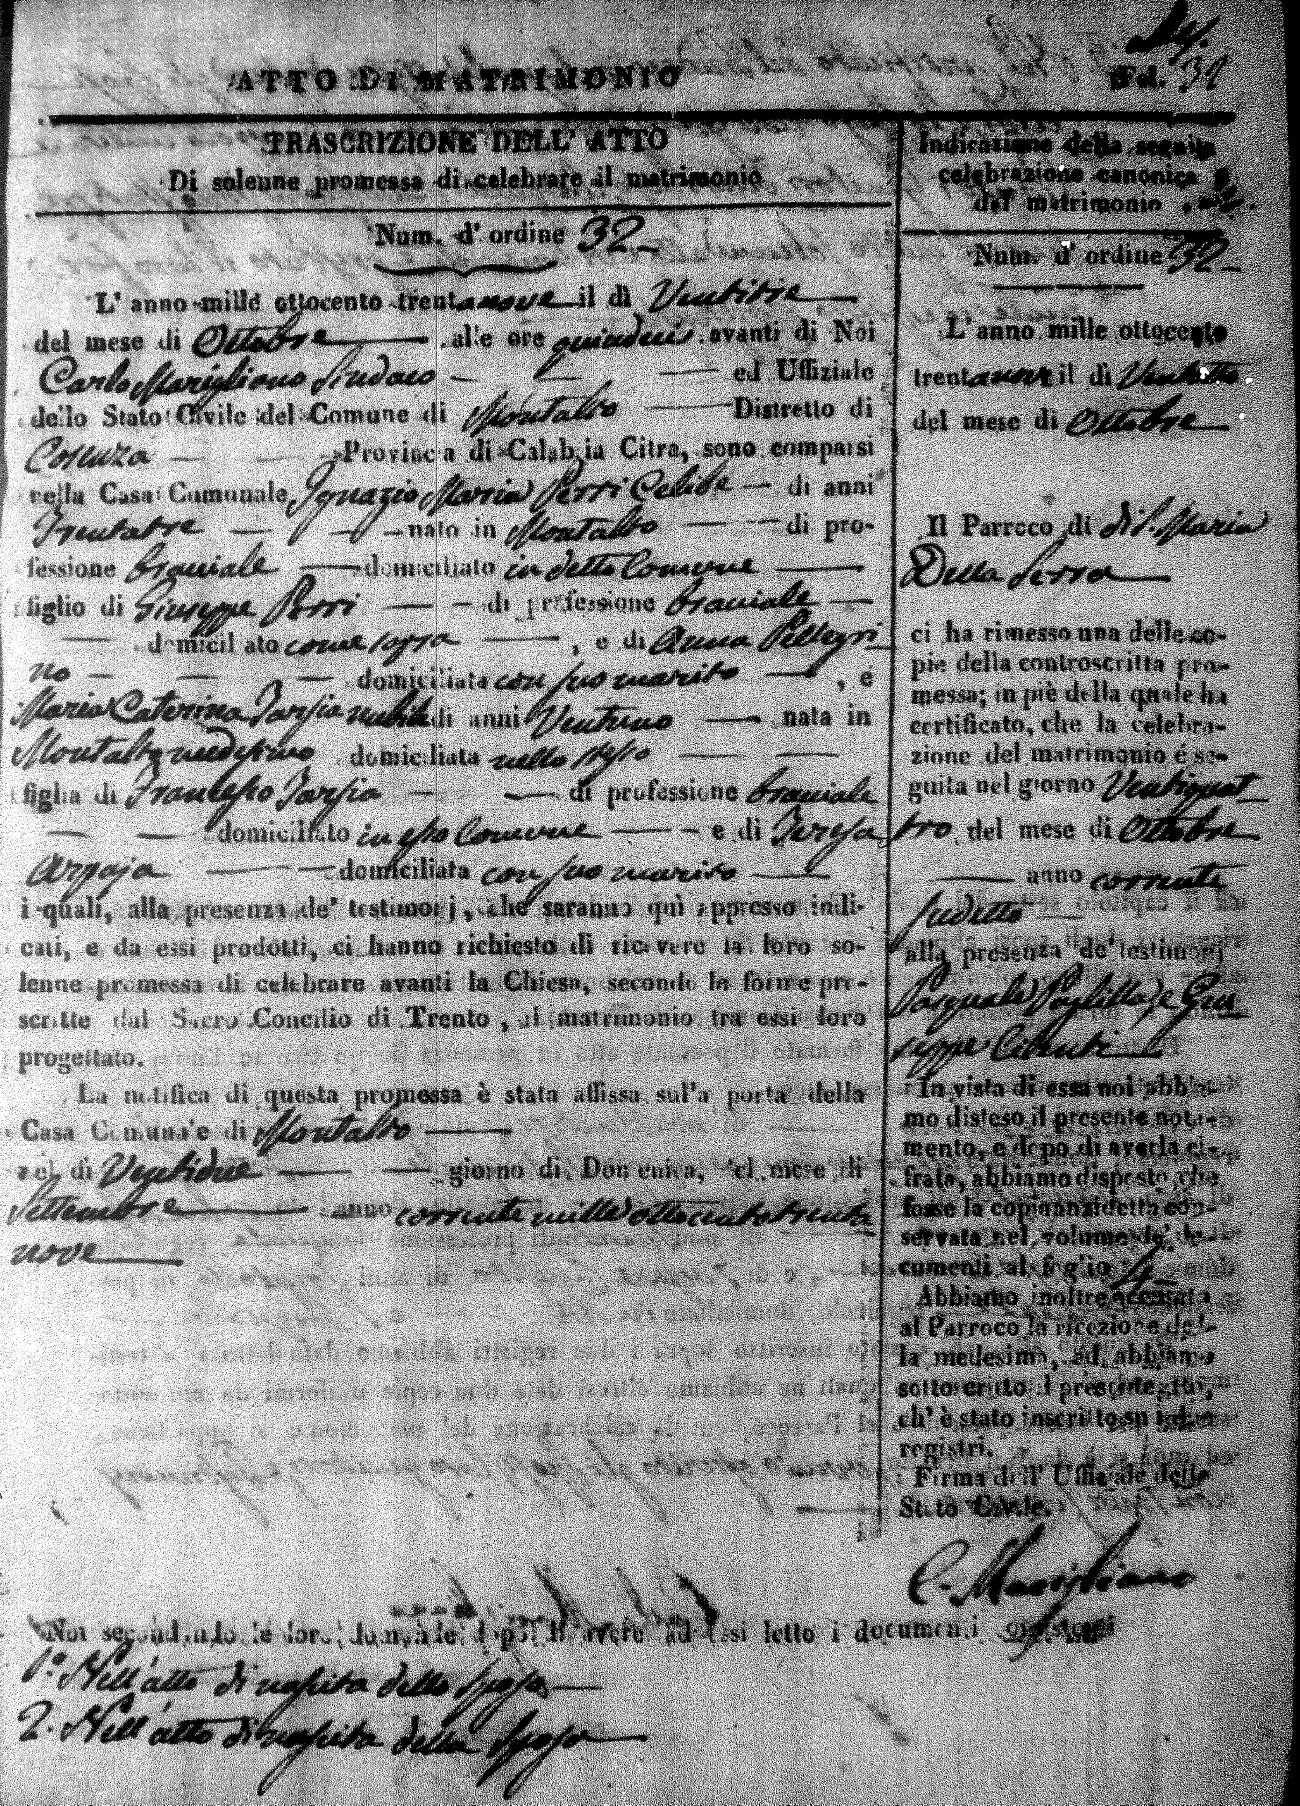 ATTO DI MATRIMONIO
Fol. 32
TRASCRIZIONE DELL' ATTO
Di solenne promessa di celebrare il matrimonio
Num. d' ordine 32
L' anno mille ottocento trentanove il dì Ventitre
del mese di Ottobre alle ore quindici avanti di Noi
Carlo Marigliano Sindaco ed Uffiziale
dello Stato Civile del Comune di Montalto Distretto di
Cosenza Provincia di Calabria Citra, sono comparsi
nella Casa Comunale Ignazio Maria Perri Celibe di anni
Trentatre nato in Montalto di pro-
fessione bracciale domiciliato in detto Comune
figlio di Giuseppe Perri di professione bracciale
domiciliato come sopra, e di Anna Pellegri
no domiciliata con suo marito, e
Maria Caterina Tarsia nubile di anni Ventuno nata in
Montalto medesimo domiciliata nello stesso
figlia di Francesco Tarsia di professione bracciale
domiciliato in esso Comune e di Teresa
Arpaja domiciliata con suo marito
i quali, alla presenza de' testimonj, che saranno quì appresso indi-
cati, e da essi prodotti, ci hanno richiesto di ricevere la loro so-
lenne promessa di celebrare avanti la Chiesa, secondo le forme pre-
scritte dal Sacro Concilio di Trento, il matrimonio tra essi loro
progettato.
La notifica di questa promessa è stata affissa sulla porta della
Casa Comunale di Montalto
nel dì Ventidue giorno di Domenica, del mese di
Settembre anno corrente mille ottocento trenta
nove
Indicazione della seguita
celebrazione canonica
del matrimonio
Num. d' ordine 32
L' anno mille ottocento
trentanove il dì Ventotto
del mese di Ottobre
Il Parroco di di S. Maria
Della Serra
ci ha rimesso una delle co-
pie della controscritta pro-
messa; in piè della quale ha
certificato, che la celebra-
zione del matrimonio é se-
guita nel giorno Ventiquat
tro del mese di Ottobre
anno corrente
sudetto
alla presenza de' testimonj
Pasquale Puglilla, e Giu
seppe Cibuti
In vista di essa noi abbia-
mo disteso il presente notia-
mento, e dopo di averla ci-
frata, abbiamo disposto, che
fosse la copia anzidetta con-
servata nel volume de' do-
cumenti al foglio 4
Abbiamo inoltre accusata
al Parroco la ricezione del-
la medesima, ed abbiamo
sottoscritto il presente atto,
ch' è stato inscritto su i due
registri.
Firma dell' Uffiziale dello
Stato Civile.
C. Marigliano
Noi secondando le loro domande dopo di avere ad essi letto i documenti consistenti
1.º Nell'atto di nascita dello sposo
2. Nell'atto di nascita della sposa